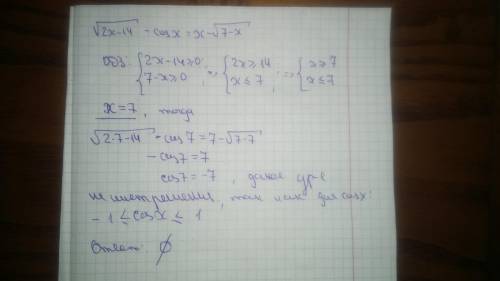 √(2x-14) - cos x = x - √(7-x)
ОДЗ: { 2x-14≥0 ; 7-x≥0 ; => { 2x≥14 ; x≤7 ; => { x≥7 ; x≤7
x=7, тогда
√(2·7-14) - cos7 = 7 - √(7-7)
- cos7 = 7
cos7 = -7, данное ур-е
не имеет решения, так как для cosx:
-1 ≤ cosx ≤ 1
Ответ: ∅